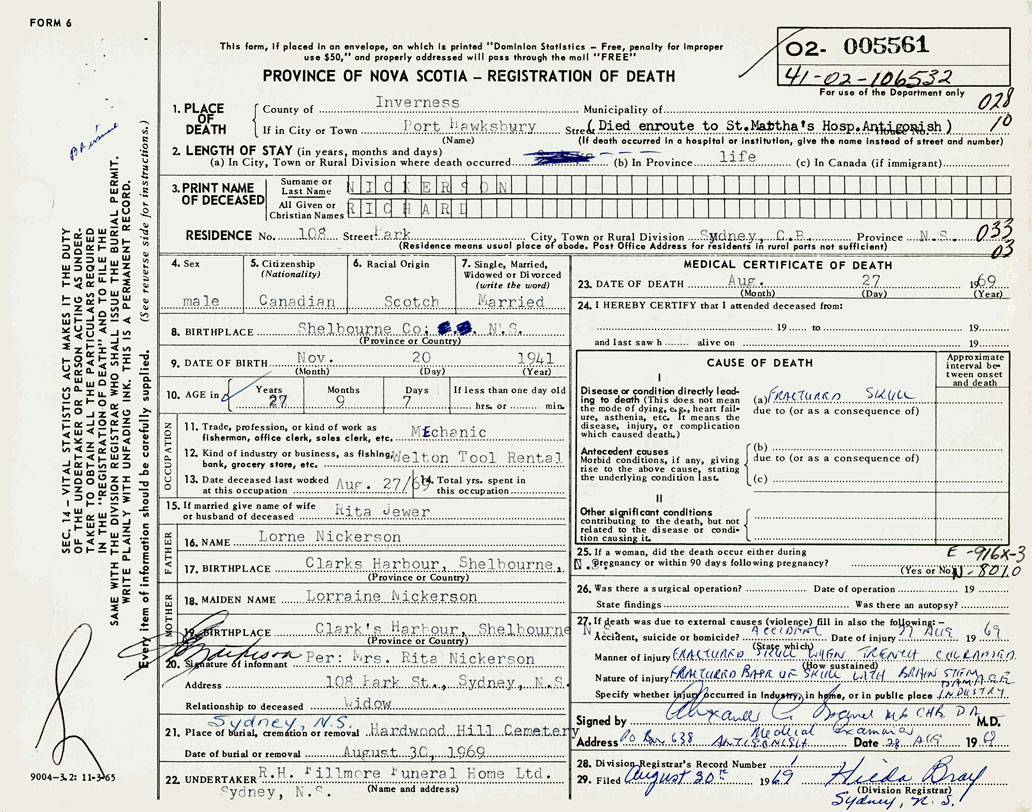 FORM 6
This form, if placed in an envelope, on which is printed "Dominion Statistics – Free, penalty for improper
use $50," and properly addressed will pass through the mail "FREE"
PROVINCE OF NOVA SCOTIA – REGISTRATION OF DEATH
02- 005561
41-02-106532
For use of the Department only
028
10
1. PLACE OF DEATH
County of Inverness Municipality of
If in City or Town Port Hawksbury Street (Died enroute to St.Martha's Hosp.Antigonish)
(Name) (If death occurred in a hospital or institution, give the name instead of street and number)
2. LENGTH OF STAY (in years, months and days)
(a) In City, Town or Rural Division where death occurred (b) In Province life (c) In Canada (if immigrant)
3. PRINT NAME OF DECEASED
Surname or Last Name NICKERSON
All Given or Christian Names RICHARD
RESIDENCE No. 108 Street Park City, Town or Rural Division Sydney, C.B. Province N.S.
033
03
(Residence means usual place of abode. Post Office Address for residents in rural parts not sufficient)
SEC. 14 – VITAL STATISTICS ACT MAKES IT THE DUTY
OF THE UNDERTAKER OR PERSON ACTING AS UNDER-
TAKER TO OBTAIN ALL THE PARTICULARS REQUIRED
IN THE "REGISTRATION OF DEATH" AND TO FILE THE
SAME WITH THE DIVISION REGISTRAR WHO SHALL ISSUE THE BURIAL PERMIT.
WRITE PLAINLY WITH UNFADING INK. THIS IS A PERMANENT RECORD.
Every item of information should be carefully supplied. (See reverse side for instructions.)
4. Sex
male
5. Citizenship
(Nationality)
Canadian
6. Racial Origin
Scotch
7. Single, Married,
Widowed or Divorced
(write the word)
Married
8. BIRTHPLACE Shelbourne Co: N.S.
(Province or Country)
9. DATE OF BIRTH Nov. 20 1941
(Month) (Day) (Year)
10. AGE in Years Months Days If less than one day old
27 9 7 hrs. or min.
OCCUPATION
11. Trade, profession, or kind of work as
fisherman, office clerk, sales clerk, etc. Mechanic
12. Kind of industry or business, as fishing,
bank, grocery store, etc. Welton Tool Rental
13. Date deceased last worked
at this occupation Aug. 27/69
14. Total yrs. spent in
this occupation
15. If married give name of wife
or husband of deceased Rita Jewer
FATHER
16. NAME Lorne Nickerson
17. BIRTHPLACE Clarks Harbour, Shelbourne, N.S.
(Province or Country)
MOTHER
18. MAIDEN NAME Lorraine Nickerson
19. BIRTHPLACE Clark's Harbour, Shelbourne N.S.
(Province or Country)
20. Signature of informant Per: Mrs. Rita Nickerson
Address 108 Park St., Sydney, N.S.
Relationship to deceased Widow
Sydney, N.S.
21. Place of burial, cremation or removal Hardwood Hill Cemetery
Date of burial or removal August 30, 1969
22. UNDERTAKER R.H. Fillmore Funeral Home Ltd.
Sydney, N.S. (Name and address)
9004–3.2: 11-3-65
MEDICAL CERTIFICATE OF DEATH
23. DATE OF DEATH Aug. 27 1969
(Month) (Day) (Year)
24. I HEREBY CERTIFY that I attended deceased from:
19 to 19
and last saw h alive on 19
CAUSE OF DEATH
Approximate
interval be-
tween onset
and death
I
Disease or condition directly lead-
ing to death (This does not mean
the mode of dying, e.g., heart fail-
ure, asthenia, etc. It means the
disease, injury, or complication
which caused death.)
(a) FRACTURED SKULL
due to (or as a consequence of)
Antecedent causes
Morbid conditions, if any, giving
rise to the above cause, stating
the underlying condition last.
(b)
due to (or as a consequence of)
(c)
II
Other significant conditions
contributing to the death, but not
related to the disease or condi-
tion causing it.
25. If a woman, did the death occur either during
pregnancy or within 90 days following pregnancy?
(Yes or No)
E-916X-3
N-801.0
26. Was there a surgical operation? Date of operation 19
State findings Was there an autopsy?
27. If death was due to external causes (violence) fill in also the following:–
Accident, suicide or homicide? ACCIDENT Date of injury 27 AUG 1969
(State which)
Manner of injury FRACTURED SKULL WHEN TRENCH COLLAPSED
(How sustained)
Nature of injury FRACTURED BASE OF SKULL WITH BRAIN STEM DAMAGE
Specify whether injury occurred in industry, in home, or in public place INDUSTRY
Signed by Alexander C. M.D.
Medical Examiner
Address PO Box 638 ANTIGONISH Date 28 AUG 1969
28. Division Registrar's Record Number 1
29. Filed August 30th 1969 Hilda Bray
(Division Registrar)
Sydney, N.S.